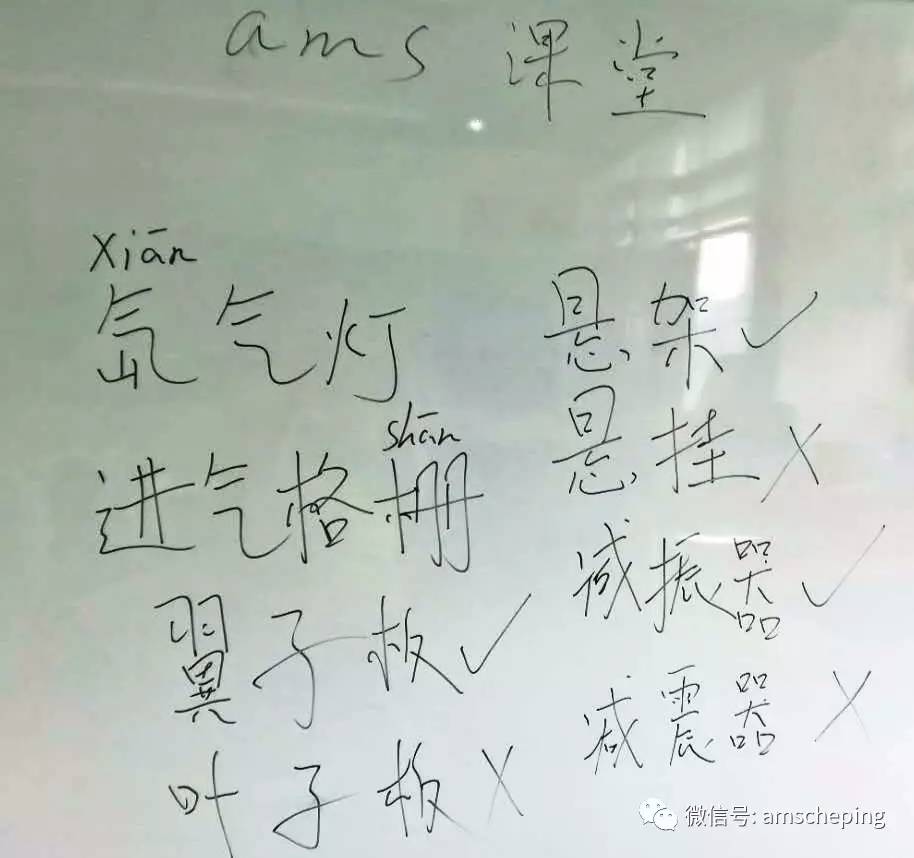 ams 课堂
xiān
氙气灯
shān
进气格栅
翼子板✓
叶子板X
悬架✓
悬挂X
减振器✓
减震器X
微信号: amscheping